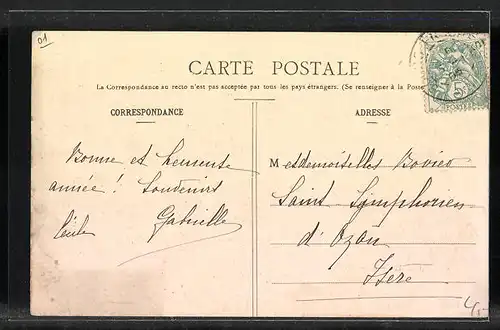 01
CARTE POSTALE
La Correspondance au recto n'est pas acceptée par tous les pays étrangers. (Se renseigner à la Poste
CORRESPONDANCE
Bonne et heureuse
année! Souvenirs
Cécile Gabrielle
ADRESSE
Mesdemoiselles Bovier
Saint-Symphorien
d'Ozon
Isère
5
4,-